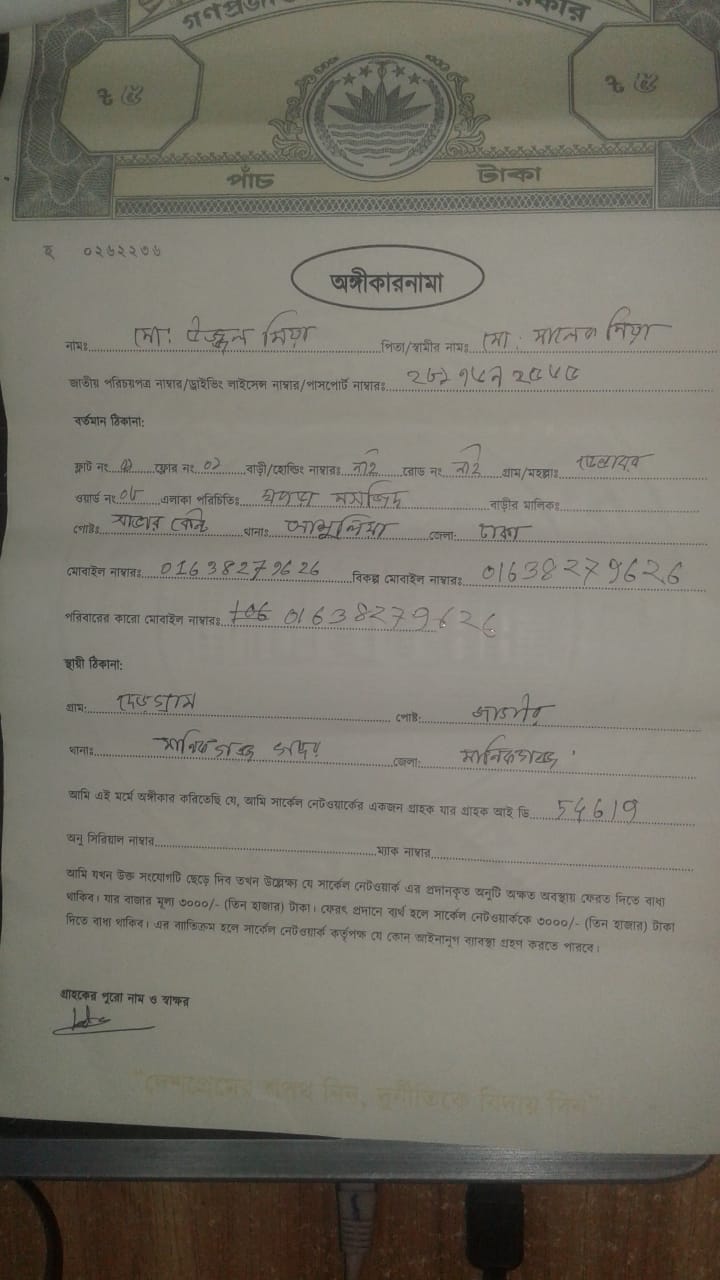 ৳ ৫ ৳ ৫
পাঁচ টাকা
০২৬২২৩৬
অঙ্গীকারনামা
নামঃ মো: উজ্জল মিয়া পিতা/স্বামীর নামঃ মো: মালেক মিয়া
জাতীয় পরিচয়পত্র নাম্বার/ড্রাইভিং লাইসেন্স নাম্বার/পাসপোর্ট নাম্বারঃ
বর্তমান ঠিকানা:
ফ্লাট নং ফ্লোর নং ০২ বাড়ী/হোল্ডিং নাম্বারঃ নাই রোড নং নাই গ্রাম/মহল্লাঃ
ওয়ার্ড নং ০৮ এলাকা পরিচিতিঃ মসজিদ বাড়ীর মালিকঃ
পোষ্টঃ সাভার কেন্ট থানাঃ আশুলিয়া জেলা: ঢাকা
মোবাইল নাম্বারঃ 01638279626 বিকল্প মোবাইল নাম্বারঃ 01638279626
পরিবারের কারো মোবাইল নাম্বারঃ 01638279626
স্থায়ী ঠিকানা:
গ্রাম: দেড়গ্রাম পোষ্ট: জাগীর
থানাঃ মানিকগঞ্জ সদর জেলা: মানিকগঞ্জ
আমি এই মর্মে অঙ্গীকার করিতেছি যে, আমি সার্কেল নেটওয়ার্কের একজন গ্রাহক যার গ্রাহক আই ডি 54619
অনু সিরিয়াল নাম্বার ম্যাক নাম্বার
আমি যখন উক্ত সংযোগটি ছেড়ে দিব তখন উল্লেক্ষ্য যে সার্কেল নেটওয়ার্ক এর প্রদানকৃত অনুটি অক্ষত অবস্থায় ফেরত দিতে বাধ্য
থাকিব। যার বাজার মূল্য ৩০০০/- (তিন হাজার) টাকা। ফেরৎ প্রদানে ব্যর্থ হলে সার্কেল নেটওয়ার্ককে ৩০০০/- (তিন হাজার) টাকা
দিতে বাধ্য থাকিব। এর ব্যতিক্রম হলে সার্কেল নেটওয়ার্ক কর্তৃপক্ষ যে কোন আইনানুগ ব্যবস্থা গ্রহণ করতে পারবে।
গ্রাহকের পুরো নাম ও স্বাক্ষর
"দেশপ্রেমের শপথ নিন, দুর্নীতিকে বিদায় দিন"